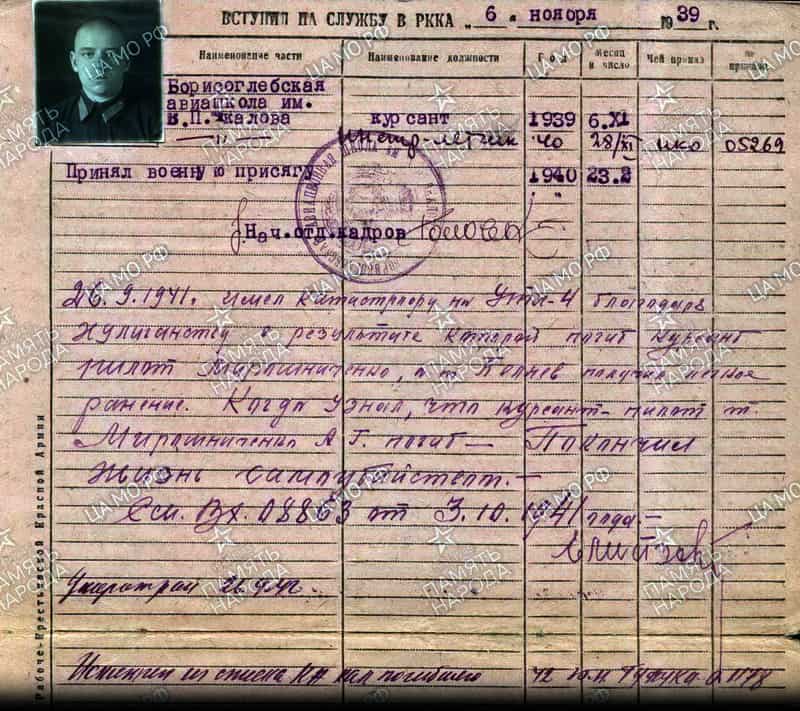 ВСТУПИЛ НА СЛУЖБУ В РККА „6“ ноября 1939 г.
Наименование части Наименование должности Год Месяц и число Чей приказ № приказа
Борисоглебская
авиашкола им.
В.П. Чкалова курсант 1939 6.XI
—„— летчик 40 28/XI НКО 05269
Принял военную присягу 1940 23.2
Нач. отд. кадров
26.9.1941. имел катастрофу на УТИ-4 благодаря
хулиганству в результате которой погиб курсант
пилот Мирошниченко, а т. получил легкое
ранение. Когда узнал, что курсант-пилот т.
Мирошниченко А.Г. погиб — Покончил
жизнь самоубийством.—
См. Вх. 08863 от 3.10.1941 года.—
Исключен из списка КА как погибший 42
Рабоче-Крестьянской Красной Армии
ПАМЯТЬ НАРОДА
ЦАМО РФ